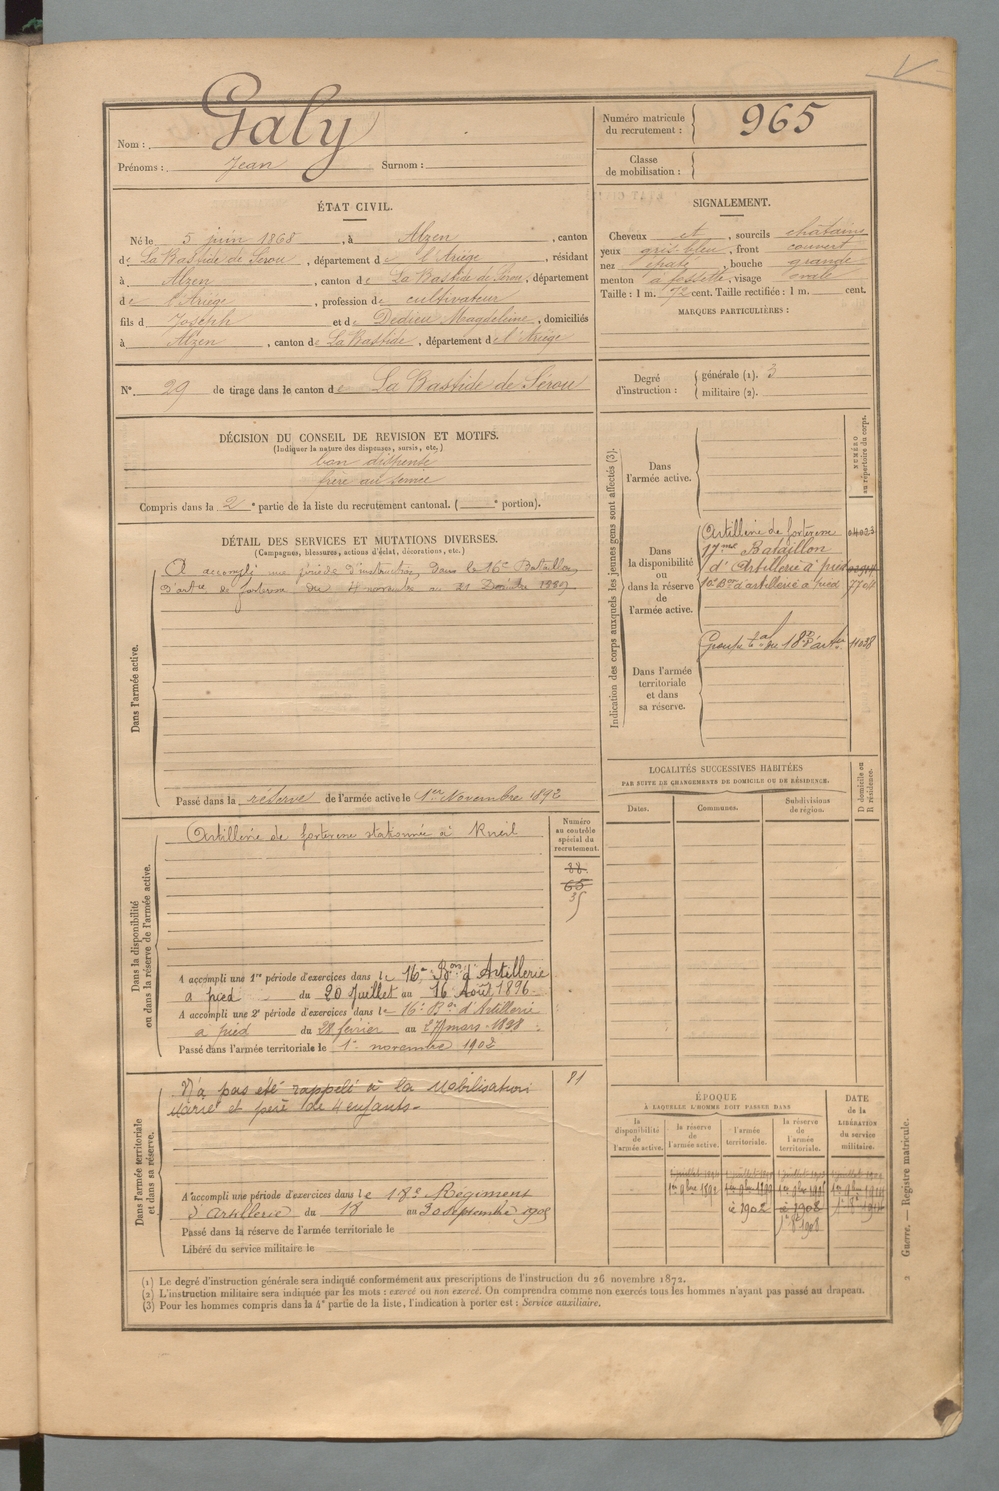 Nom : Galy
Prénoms : Jean Surnom :
Numéro matricule du recrutement : 965
Classe de mobilisation :
ÉTAT CIVIL.
Né le 5 juin 1868, à Alzen, canton
de La Bastide de Sérou, département de l'Ariège, résidant
à Alzen, canton de La Bastide de Sérou, département
de l'Ariège, profession de cultivateur
fils d Joseph et de Dedieu Magdeleine, domiciliés
à Alzen, canton de La Bastide, département de l'Ariège
N° 29 de tirage dans le canton de La Bastide de Sérou
SIGNALEMENT.
Cheveux et, sourcils châtains
yeux gris-bleu, front couvert
nez épaté, bouche grande
menton à fossette, visage ovale
Taille : 1 m. 72 cent. Taille rectifiée : 1 m. cent.
MARQUES PARTICULIÈRES :
Degré d'instruction : générale (1). 3
militaire (2).
DÉCISION DU CONSEIL DE REVISION ET MOTIFS.
(Indiquer la nature des dispenses, sursis, etc.)
bon dispensé
frère au service
Compris dans la 2e partie de la liste du recrutement cantonal. ( e portion).
DÉTAIL DES SERVICES ET MUTATIONS DIVERSES.
(Campagnes, blessures, actions d'éclat, décorations, etc.)
Dans l'armée active.
A accompli une période d'instruction, dans le 16e Bataillon
d'artie de forteresse du 4 novembre au 21 Décembre 1889
Passé dans la réserve de l'armée active le 1er Novembre 1892
Indication des corps auxquels les jeunes gens sont affectés (3).
NUMÉRO au répertoire du corps.
Dans l'armée active.
Dans la disponibilité ou dans la réserve de l'armée active.
Artillerie de forteresse
17me Bataillon
d'Artillerie à pied
16e Bon d'artillerie à pied 7704
Dans l'armée territoriale et dans sa réserve.
LOCALITÉS SUCCESSIVES HABITÉES
PAR SUITE DE CHANGEMENTS DE DOMICILE OU DE RÉSIDENCE.
Dates. Communes. Subdivisions de région. D domicile ou R résidence.
Dans la disponibilité ou dans la réserve de l'armée active.
Numéro au contrôle spécial du recrutement.
Artillerie de forteresse stationnée à Rueil
88
65
35
A accompli une 1re période d'exercices dans le 16e Bon d'Artillerie
à pied du 20 Juillet au 16 Août 1896.
A accompli une 2e période d'exercices dans le 16e Bon d'Artillerie
à pied du 28 février au 27 mars 1898.
Passé dans l'armée territoriale le 1er novembre 1902
Dans l'armée territoriale et dans sa réserve.
N'a pas été rappelé à la Mobilisation
Marié et père de 4 enfants.
A accompli une période d'exercices dans le 18e Régiment
d'Artillerie du 18 au 30 septembre 1905
Passé dans la réserve de l'armée territoriale le
Libéré du service militaire le
ÉPOQUE
À LAQUELLE L'HOMME DOIT PASSER DANS
la disponibilité de l'armée active.
la réserve de l'armée active.
l'armée territoriale.
la réserve de l'armée territoriale.
DATE de la LIBÉRATION du service militaire.
1er 9bre 1892
à 1902
(1) Le degré d'instruction générale sera indiqué conformément aux prescriptions de l'instruction du 26 novembre 1872.
(2) L'instruction militaire sera indiquée par les mots : exercé ou non exercé. On comprendra comme non exercés tous les hommes n'ayant pas passé au drapeau.
(3) Pour les hommes compris dans la 4e partie de la liste, l'indication à porter est : Service auxiliaire.
Guerre. — Registre matricule.